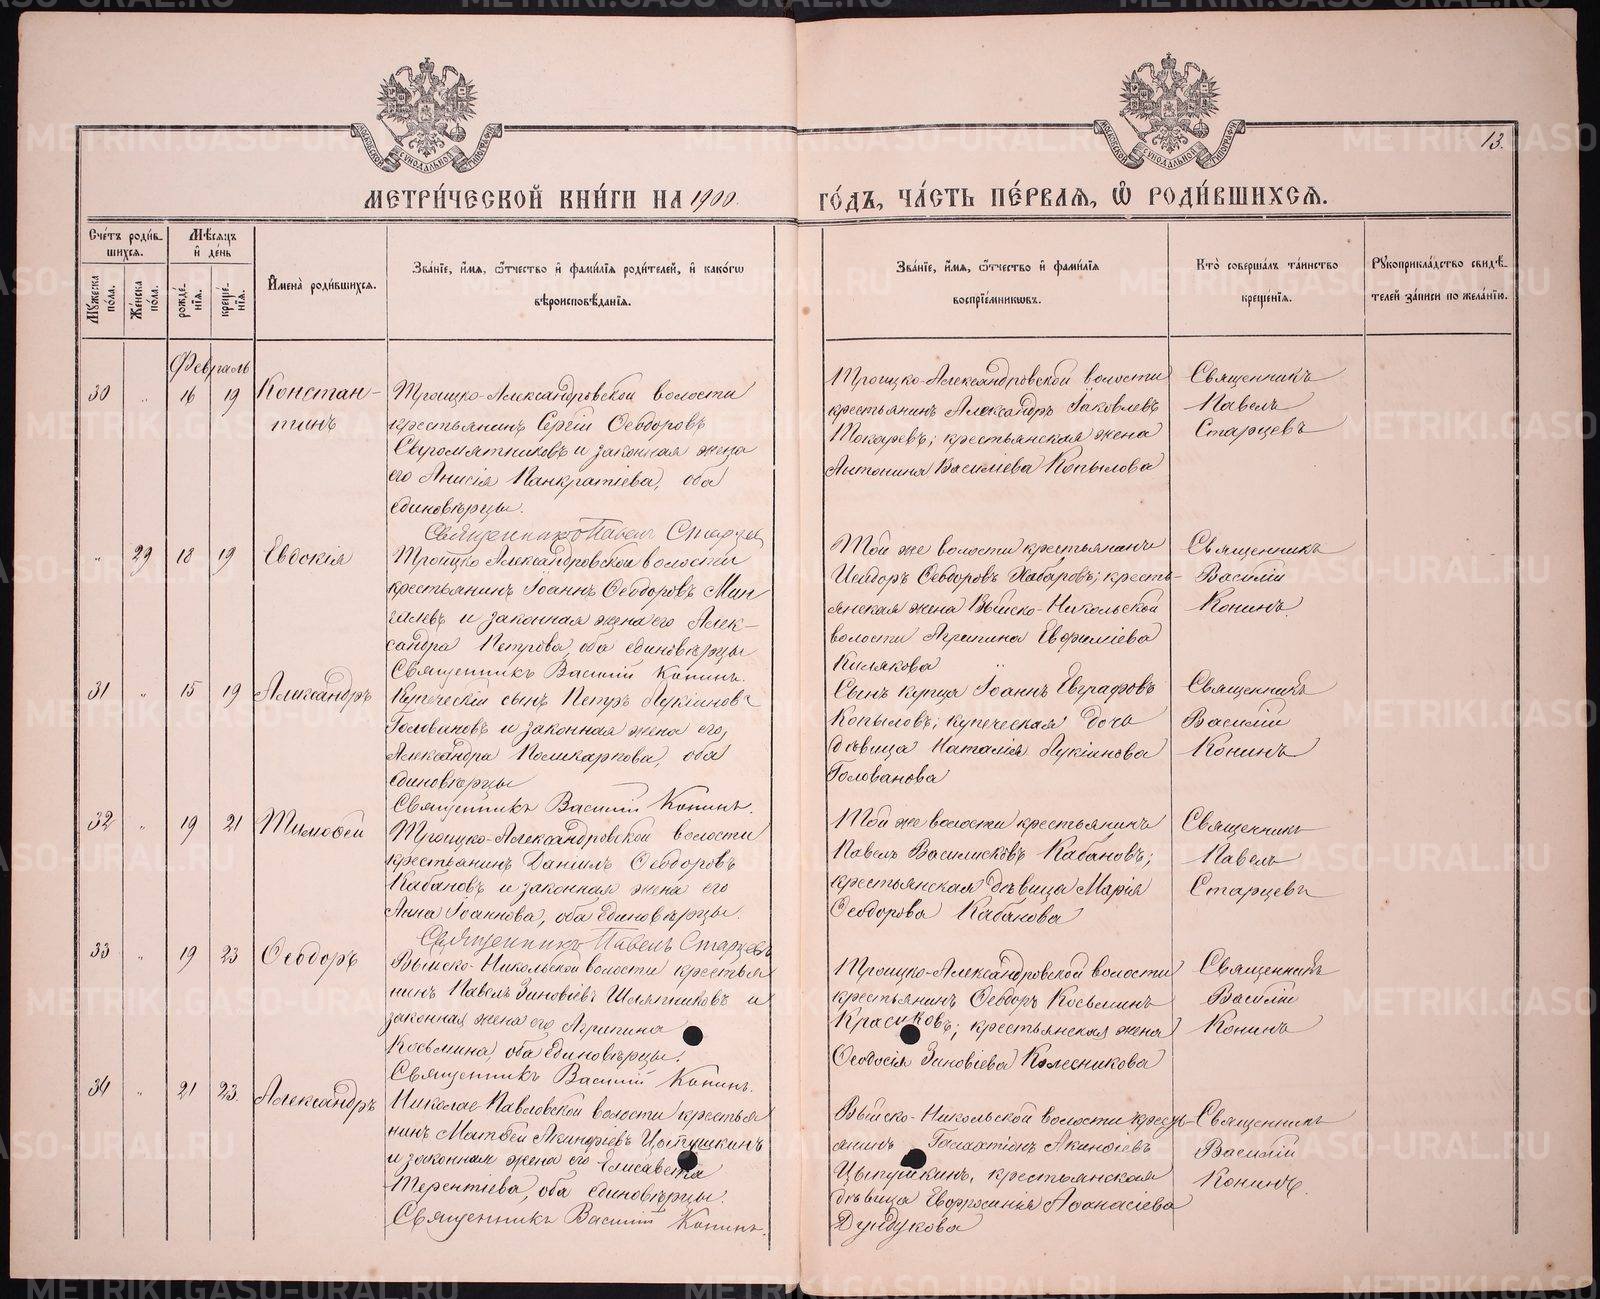 13.
МЕТРИ́ЧЕСКОЙ КНИ́ГИ НА 1900.
ГО́ДЪ, ЧА́СТЬ ПЕ́РВАЯ, Ѽ РОДИ́ВШИХСЯ.
Сче́тъ роди́в-
шихся.
Мꙋ́жеска пола.
Же́нска по́ла.
Мѣ́сяцъ
и҆ де́нь
рожде́-
нїя.
креще́-
нїя.
И҆мена̀ роди́вшихся.
Зва́нїе, и҆́мя, ѻ҆́тчество и҆ фами́лїя роди́телей, и҆ како́гѡ
вѣроисповѣ́данїя.
Зва́нїе, и҆́мя, ѻ҆́тчество и҆ фами́лїя
воспрїе́мникѡвъ.
Кто̀ соверша́лъ та́инство
креще́нїя.
Рꙋкоприкла́дство свидѣ́-
телей за́писи по жела́нїю.
Февраль
30 " 16 19 Констан-
тинъ
Троицко-Александровской волости
крестьянинъ Сергій Ѳеодоровъ
Сыромятниковъ и законная жена
его Анисія Панкратіева, оба
единовѣрцы.
Священникъ Павелъ Старцевъ
Троицко-Александровской волости
крестьянинъ Александръ Іаковлевъ
Токаревъ; крестьянская жена
Антонина Василіева Копылова
Священникъ
Павелъ
Старцевъ
" 29 18 19 Евдокія
Троицко Александровской волости
крестьянинъ Іоаннъ Ѳеодоровъ
и законная жена его Алек-
сандра Петрова, оба единовѣрцы
Священникъ Василій Конинъ.
Той же волости крестьянинъ
Исидоръ Ѳеодоровъ Хабаровъ; кресть-
янская жена Выйско-Никольской
волости Агрипина Евфиміева
Килякова
Священникъ
Василій
Конинъ
31 " 15 19 Александръ
Купеческій сынъ Петръ Лукіановъ
Головановъ и законная жена его,
Александра Поликарпова, оба
единовѣрцы
Священникъ Василій Конинъ.
Сынъ купца Іоаннъ Евграфовъ
Копыловъ; купеческая дочь
дѣвица Наталія Лукіанова
Голованова
Священникъ
Василій
Конинъ
32 " 19 21 Тимоѳей
Троицко-Александровской волости
крестьянинъ Даніилъ Ѳеодоровъ
Кабановъ и законная жена его
Анна Іоаннова, оба единовѣрцы.
Священникъ Павелъ Старцевъ
Той же волости крестьянинъ
Павелъ Василисковъ Кабановъ;
крестьянская дѣвица Марія
Ѳеодорова Кабанова
Священникъ
Павелъ
Старцевъ
33 " 19 23 Ѳеодоръ
Выйско-Никольской волости крестья
нинъ Павелъ Зиновіевъ Шляпниковъ и
законная жена его Агрипина
Косьмина, оба единовѣрцы.
Священникъ Василій Конинъ.
Троицко-Александровской волости
крестьянинъ Ѳеодоръ Косьминъ
Красиковъ; крестьянская жена
Ѳеодосія Зиновіева Колесникова
Священникъ
Василій
Конинъ
34 " 21 23. Александръ
Николае-Павловской волости крестья
нинъ Матѳей Акинфіевъ Цыпушкинъ
и законная жена его Елисавета
Терентіева, оба единовѣрцы.
Священникъ Василій Конинъ.
Выйско-Никольской волости кресть-
янинъ Галактіонъ Акинфіевъ
Цыпушкинъ, крестьянская
дѣвица Евфросинія Аѳанасіева
Дундукова
Священникъ
Василій
Конинъ.
METRIKI.GASO-URAL.RU